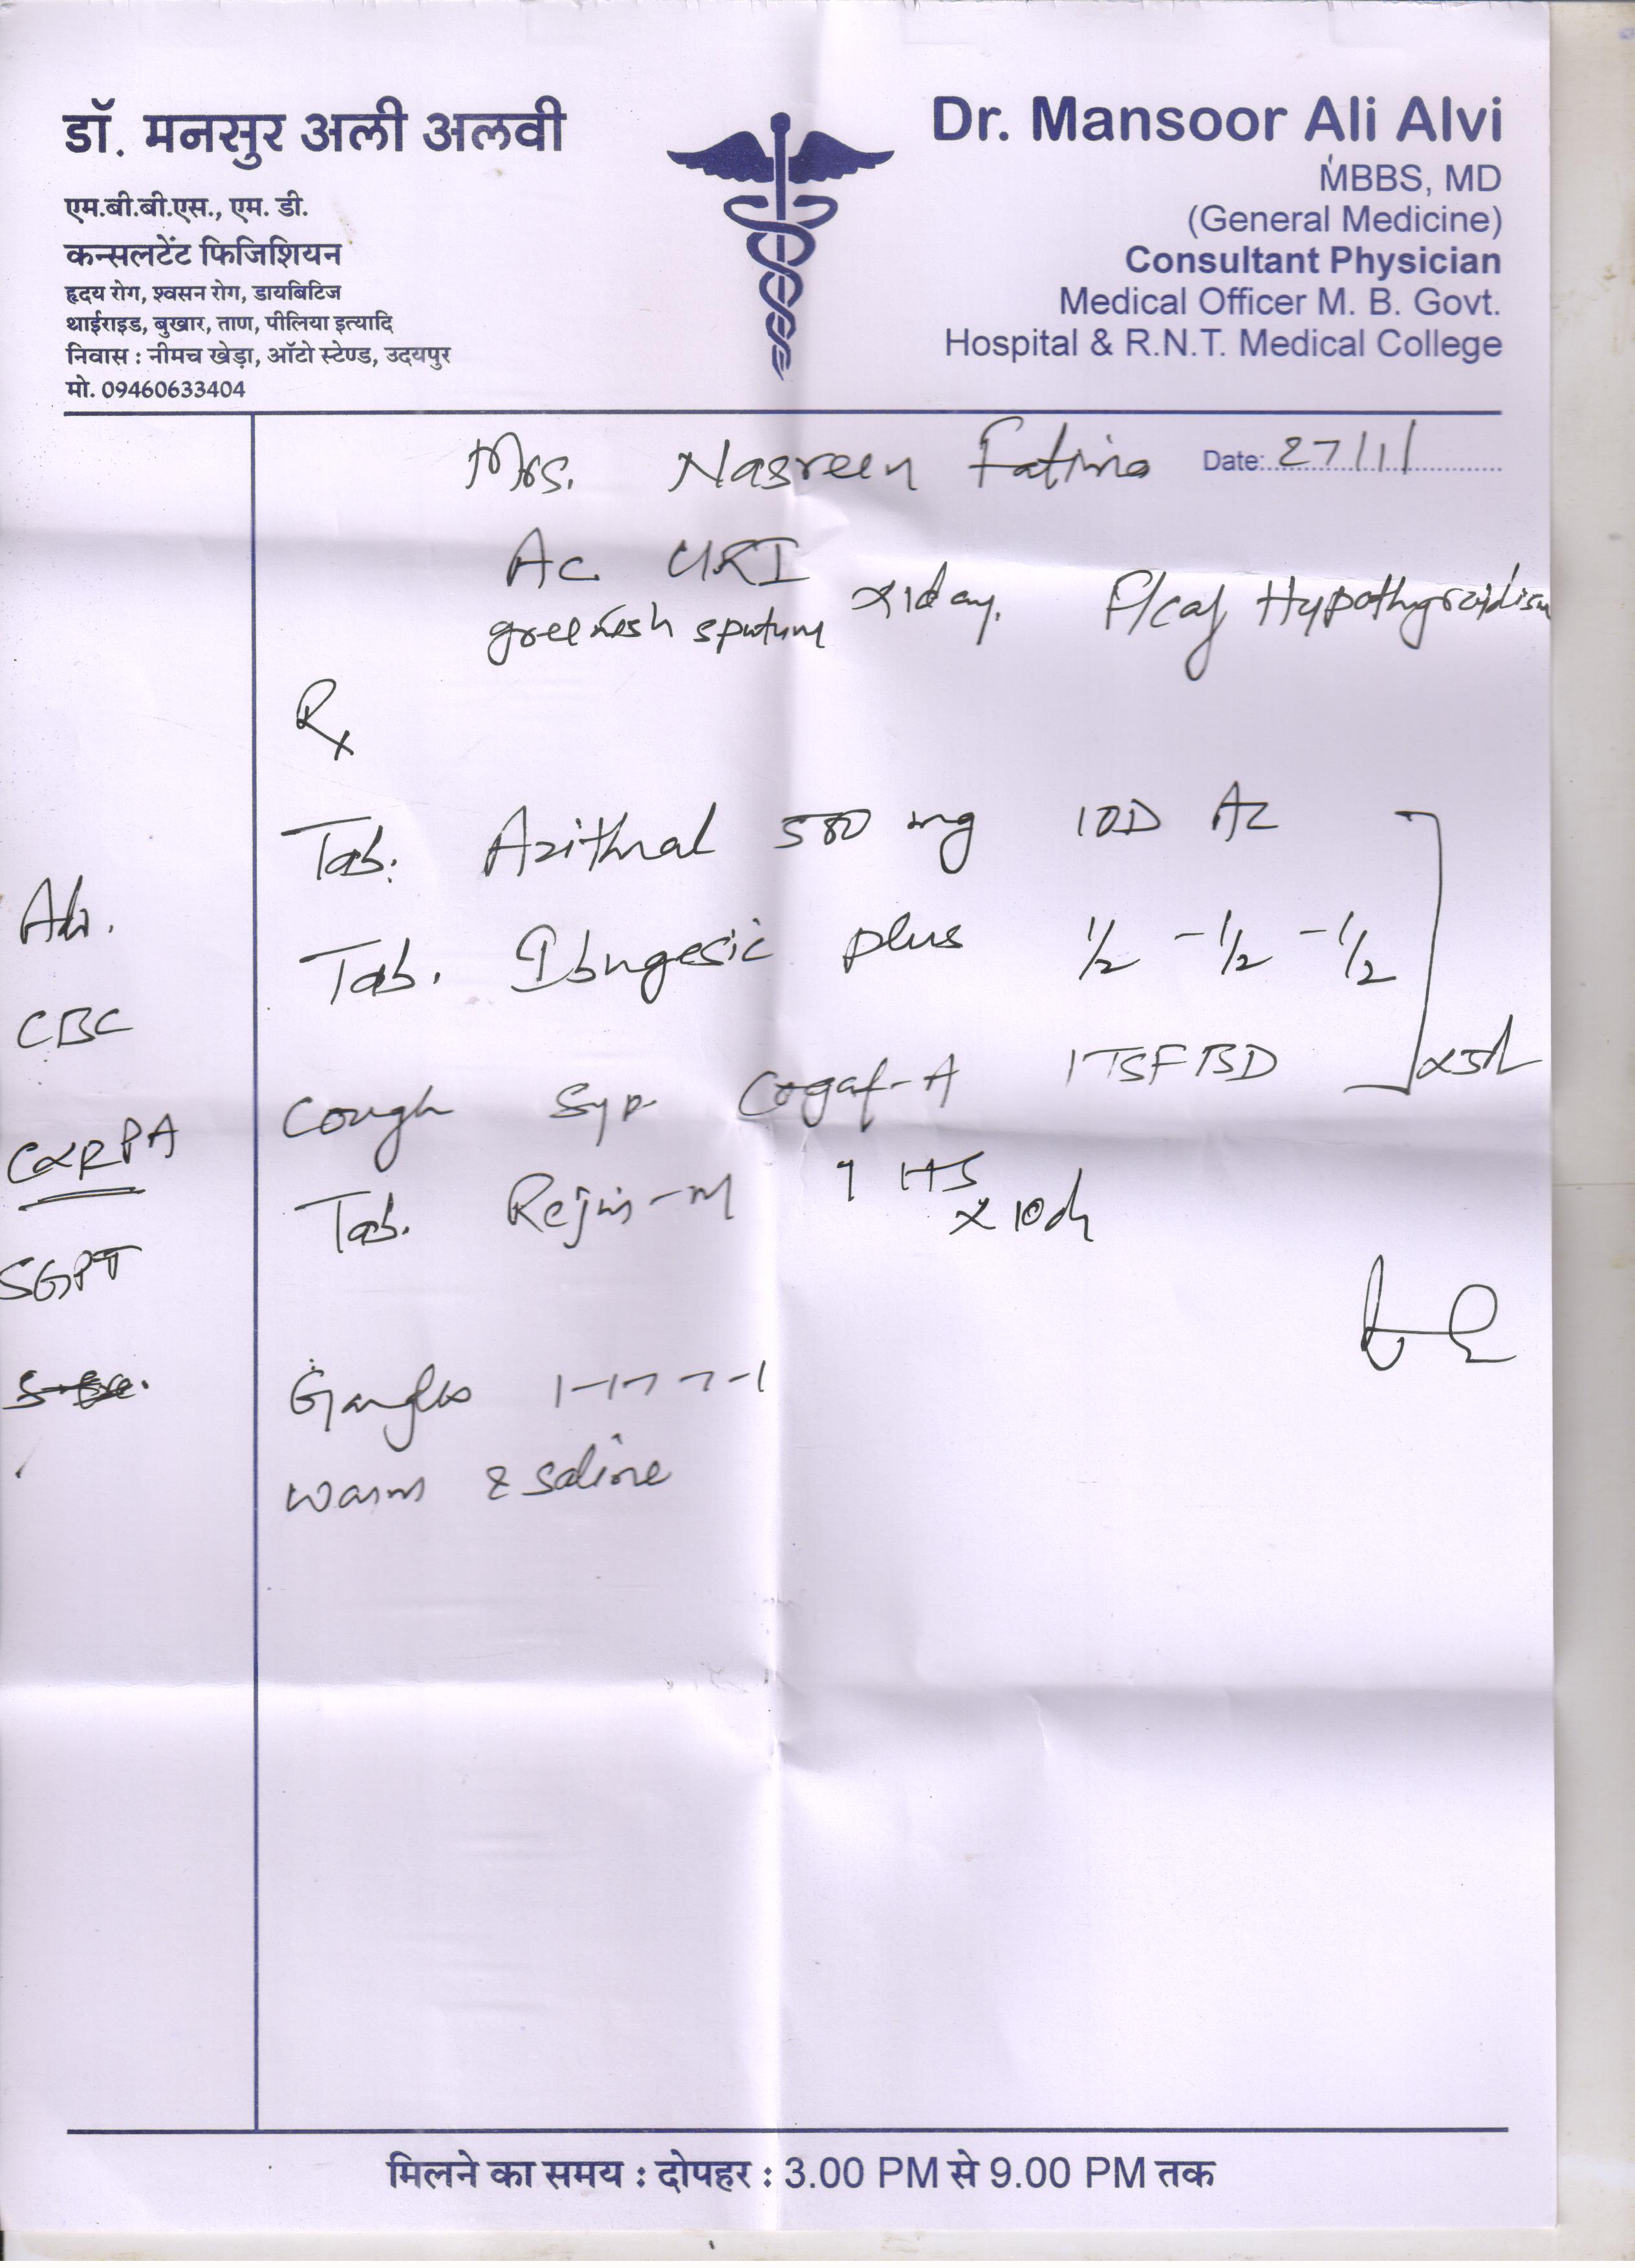 डॉ. मनसुर अली अलवी
एम.बी.बी.एस., एम. डी.
कन्सलटेंट फिजिशियन
हृदय रोग, श्वसन रोग, डायबिटिज
थाईराइड, बुखार, ताण, पीलिया इत्यादि
निवास : नीमच खेड़ा, ऑटो स्टेण्ड, उदयपुर
मो. 09460633404
Dr. Mansoor Ali Alvi
MBBS, MD
(General Medicine)
Consultant Physician
Medical Officer M. B. Govt.
Hospital & R.N.T. Medical College
Mrs. Nasreen Fatima Date: 27/11
Ac URI
greenish sputum x1day. Hypothyroidism
Rx
Tab. Azithral 500 mg 1OD
Tab. Ibugesic plus 1/2 - 1/2 - 1/2
Cough Syp. 1TSF BD x5d
Tab. 1 HS
x 10d
Gargles
warm saline
Adv.
CBC
CXR PA
SGPT
मिलने का समय : दोपहर : 3.00 PM से 9.00 PM तक